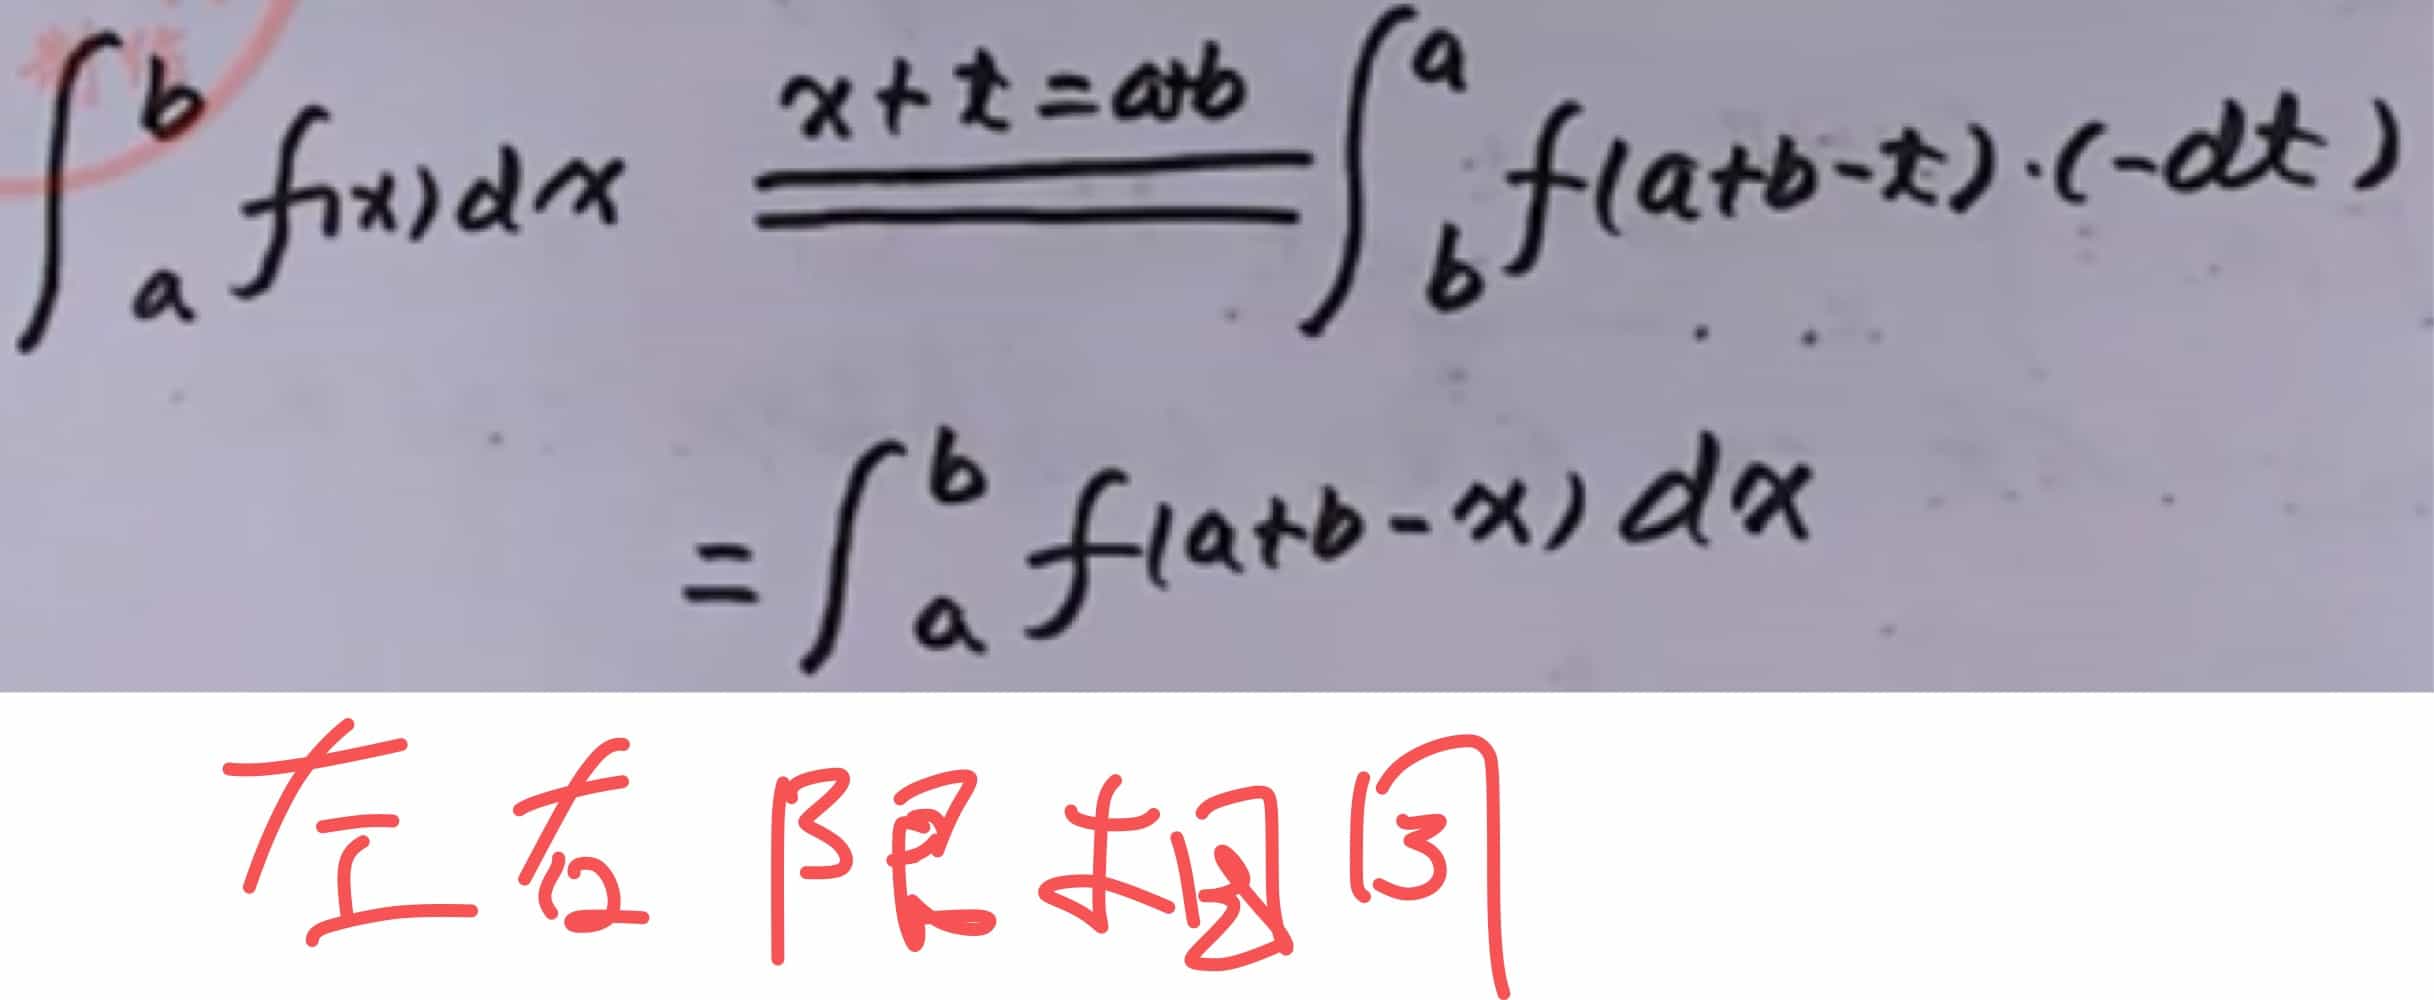 ∫_a^b f(x)dx \xlongequal{x+t=a+b} ∫_b^a f(a+b-t)·(-dt)
=∫_a^b f(a+b-x)dx
左右限相同